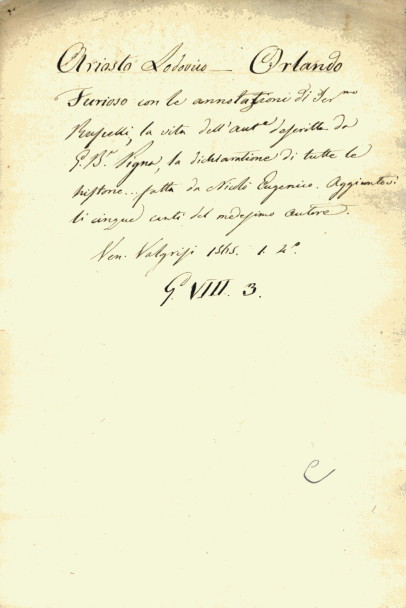 Ariosto Lodovico — Orlando
Furioso con le annotazioni di Ier.mo
Ruscelli, la vita dell'aut.e descritta da
G. B. Pigna, la dichiaratione di tutte le
historie... fatta da Nicolò Eugenico. Aggiuntovi
li cinque canti del medesimo autore.
Ven. Valgrisi 1565. 1. 4.o
G. VIII. 3.